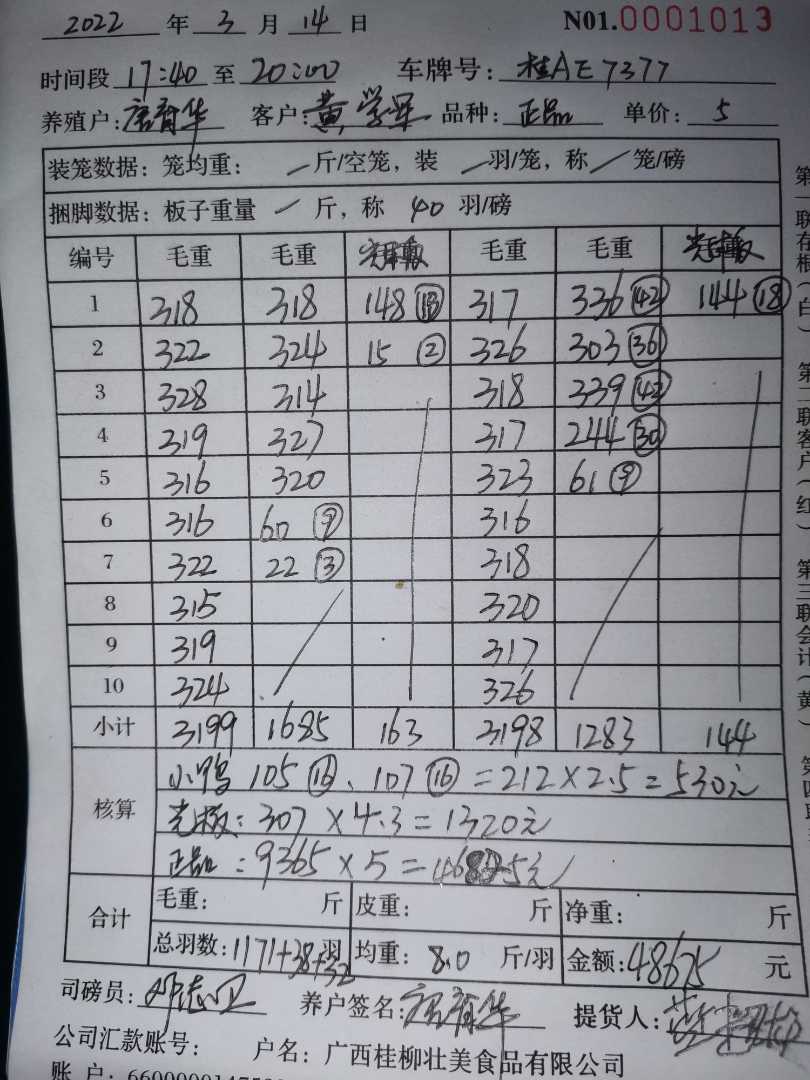 2022 年 3 月 14 日 N01.0001013
时间段 17:40 至 20:00 车牌号: 桂AE7377
养殖户: 唐育华 客户: 黄学军 品种: 正品 单价: 5
装笼数据: 笼均重: / 斤/空笼, 装 / 羽/笼, 称 / 笼/磅
捆脚数据: 板子重量 / 斤, 称 40 羽/磅
编号 毛重 毛重 毛重 毛重
1 318 318 148 ⑱ 317 336 ㊷ 144 ⑱
2 322 324 15 ② 326 303 ㊱
3 328 314 318 339 ㊷
4 319 327 317 244 ㉚
5 316 320 323 61 ⑨
6 316 60 ⑨ 316
7 322 22 ③ 318
8 315 320
9 319 317
10 324 326
小计 3199 1685 163 3198 1283 144
核算 小鸭 105 ⑯、107 ⑯ = 212 × 2.5 = 530元
光板: 307 × 4.3 = 1320元
正品: 9365 × 5 =
合计 毛重: 斤 皮重: 斤 净重: 斤
总羽数: 1171+38+32 羽 均重: 8.0 斤/羽 金额: 48675 元
司磅员: 邓志卫 养户签名: 唐育华 提货人:
公司汇款账号: 户名: 广西桂柳壮美食品有限公司
账 户:
第一联存根(白) 第二联客户(红) 第三联会计(黄) 第四联